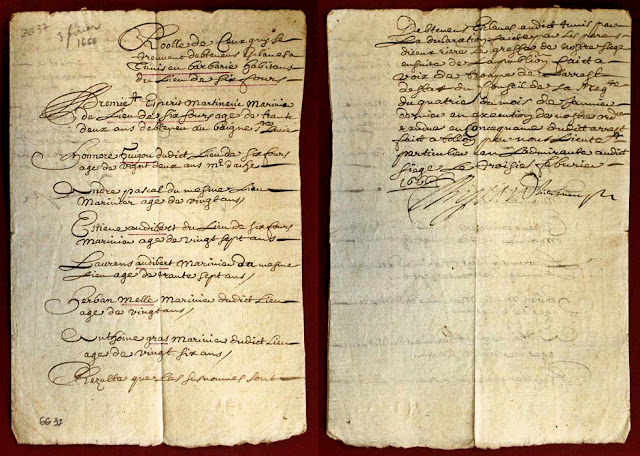 GG 37
3 février
1666
Roolle de Ceux quy se
treuvent debtenus Esclaves a
Tunis en barbarie habitans
du Lieu de Six fours
Premierement Esperit Martinenc Marinier
du Lieu de Six fours age de trante
deux ans debtenu au baigne
honnore hugou dudict Lieu de Six fours
age de vingt deux ans
Andre pascal du mesme Lieu
Marinier age de vingt ans
Estiene audibert du Lieu de Six fours
Marinier age de vingt sept ans
Laurens audibert Marinier du mesme
Lieu age de trante sept ans
Serban melle Marinier dudict Lieu
age de vingt ans
Anthoine gras Marinier dudict Lieu
age de vingt six ans
Rezulte que Les susnommes sont
GG 37
Debtenus Esclaves audict tunis par
La declaration faicte par Les parens
dieux riere Le greffe de nostre siege
ensuite de La publication faicte a
voix de trompe de Larrest
du Conseil de La
du quatrie du mois de Janvier
dernier en execution de nostre ord
randue en Consequance dudict arrest
faict a tollon par nous Lieutent
particulier en Ladmiraute audict
Siege Le troisie feburier
1666